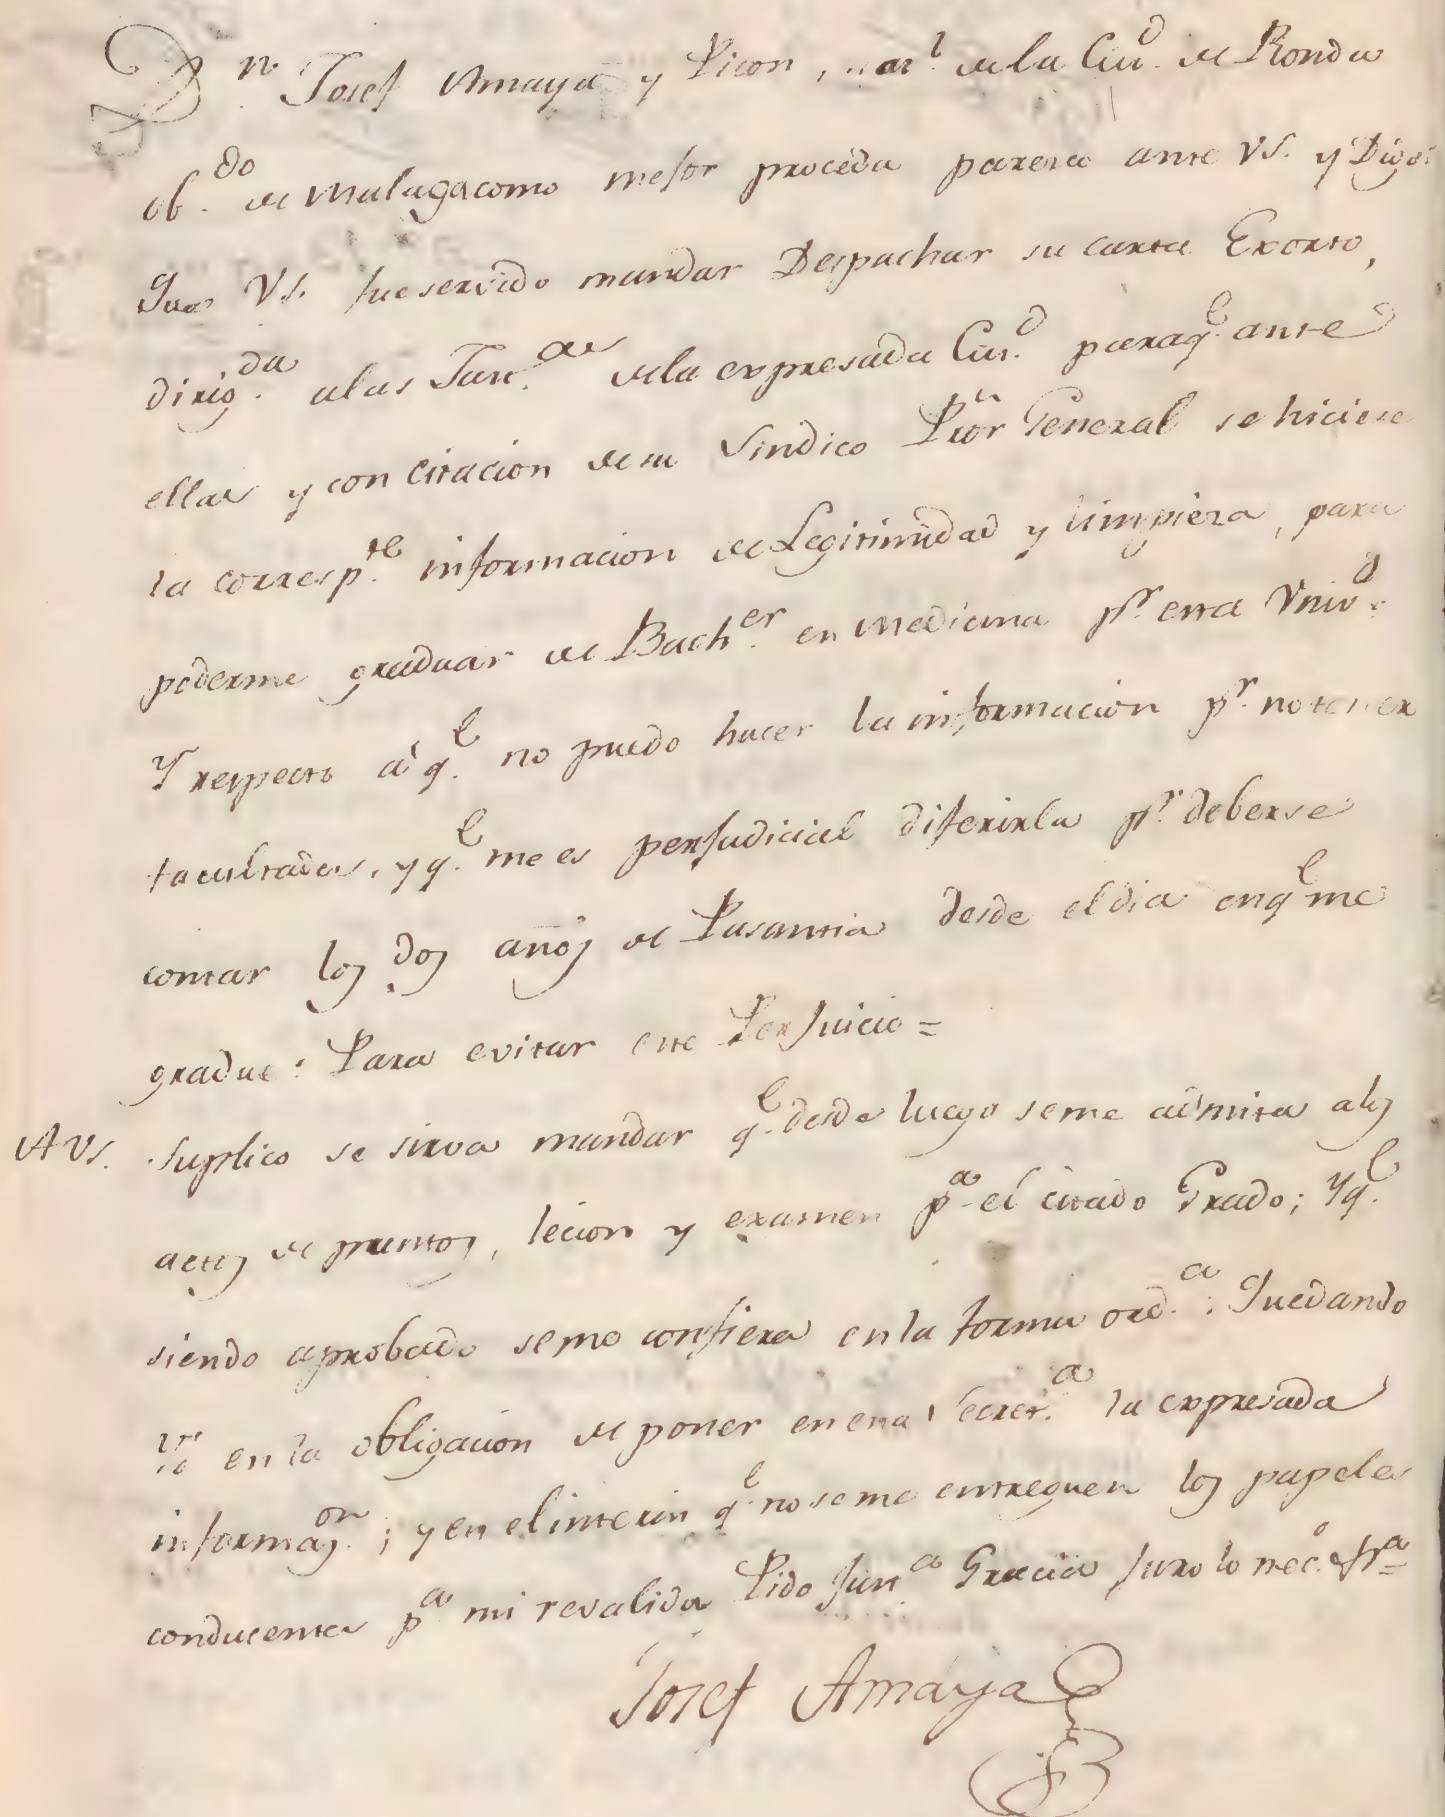 Dn. Josef Amaya y Picon, nat.l de la Ciu.d de Ronda
ob.do de Malaga como mejor proceda paresco ante VS. y Digo:
Que VS. fue servido mandar Despachar su carta Exorto,
dirig.da a las Just.as de la expresada Ciu.d para q.e ante
ellas y con citacion de su Sindico Pror General se hiciese
la corresp.te informacion de Legitimidad y limpieza, para
poderme graduar de Bach.er en Medicina pr. esta Univ.d:
Y respecto á q.e no puedo hacer la informacion pr. no tener
facultades, y q.e me es perjudicial diferirla pr. deberse
contar los dos años de Pasantia desde el dia en q.e me
gradue: Para evitar este Perjuicio =
A VS. Suplico se sirva mandar q.e desde luego se me admita a los
actos de puntos, lecion y examen p.a el citado Grado; Y q.e
siendo aprobado se me confiera en la forma ord.a: Quedando
Yo en la obligacion de poner en esa Secret.a la expresada
informaz.on; y en el interin q.e no se me entreguen los papeles
conducentes p.a mi revalida Pido Just.a Gracia Juro lo nec.o &ra=
Josef Amaya